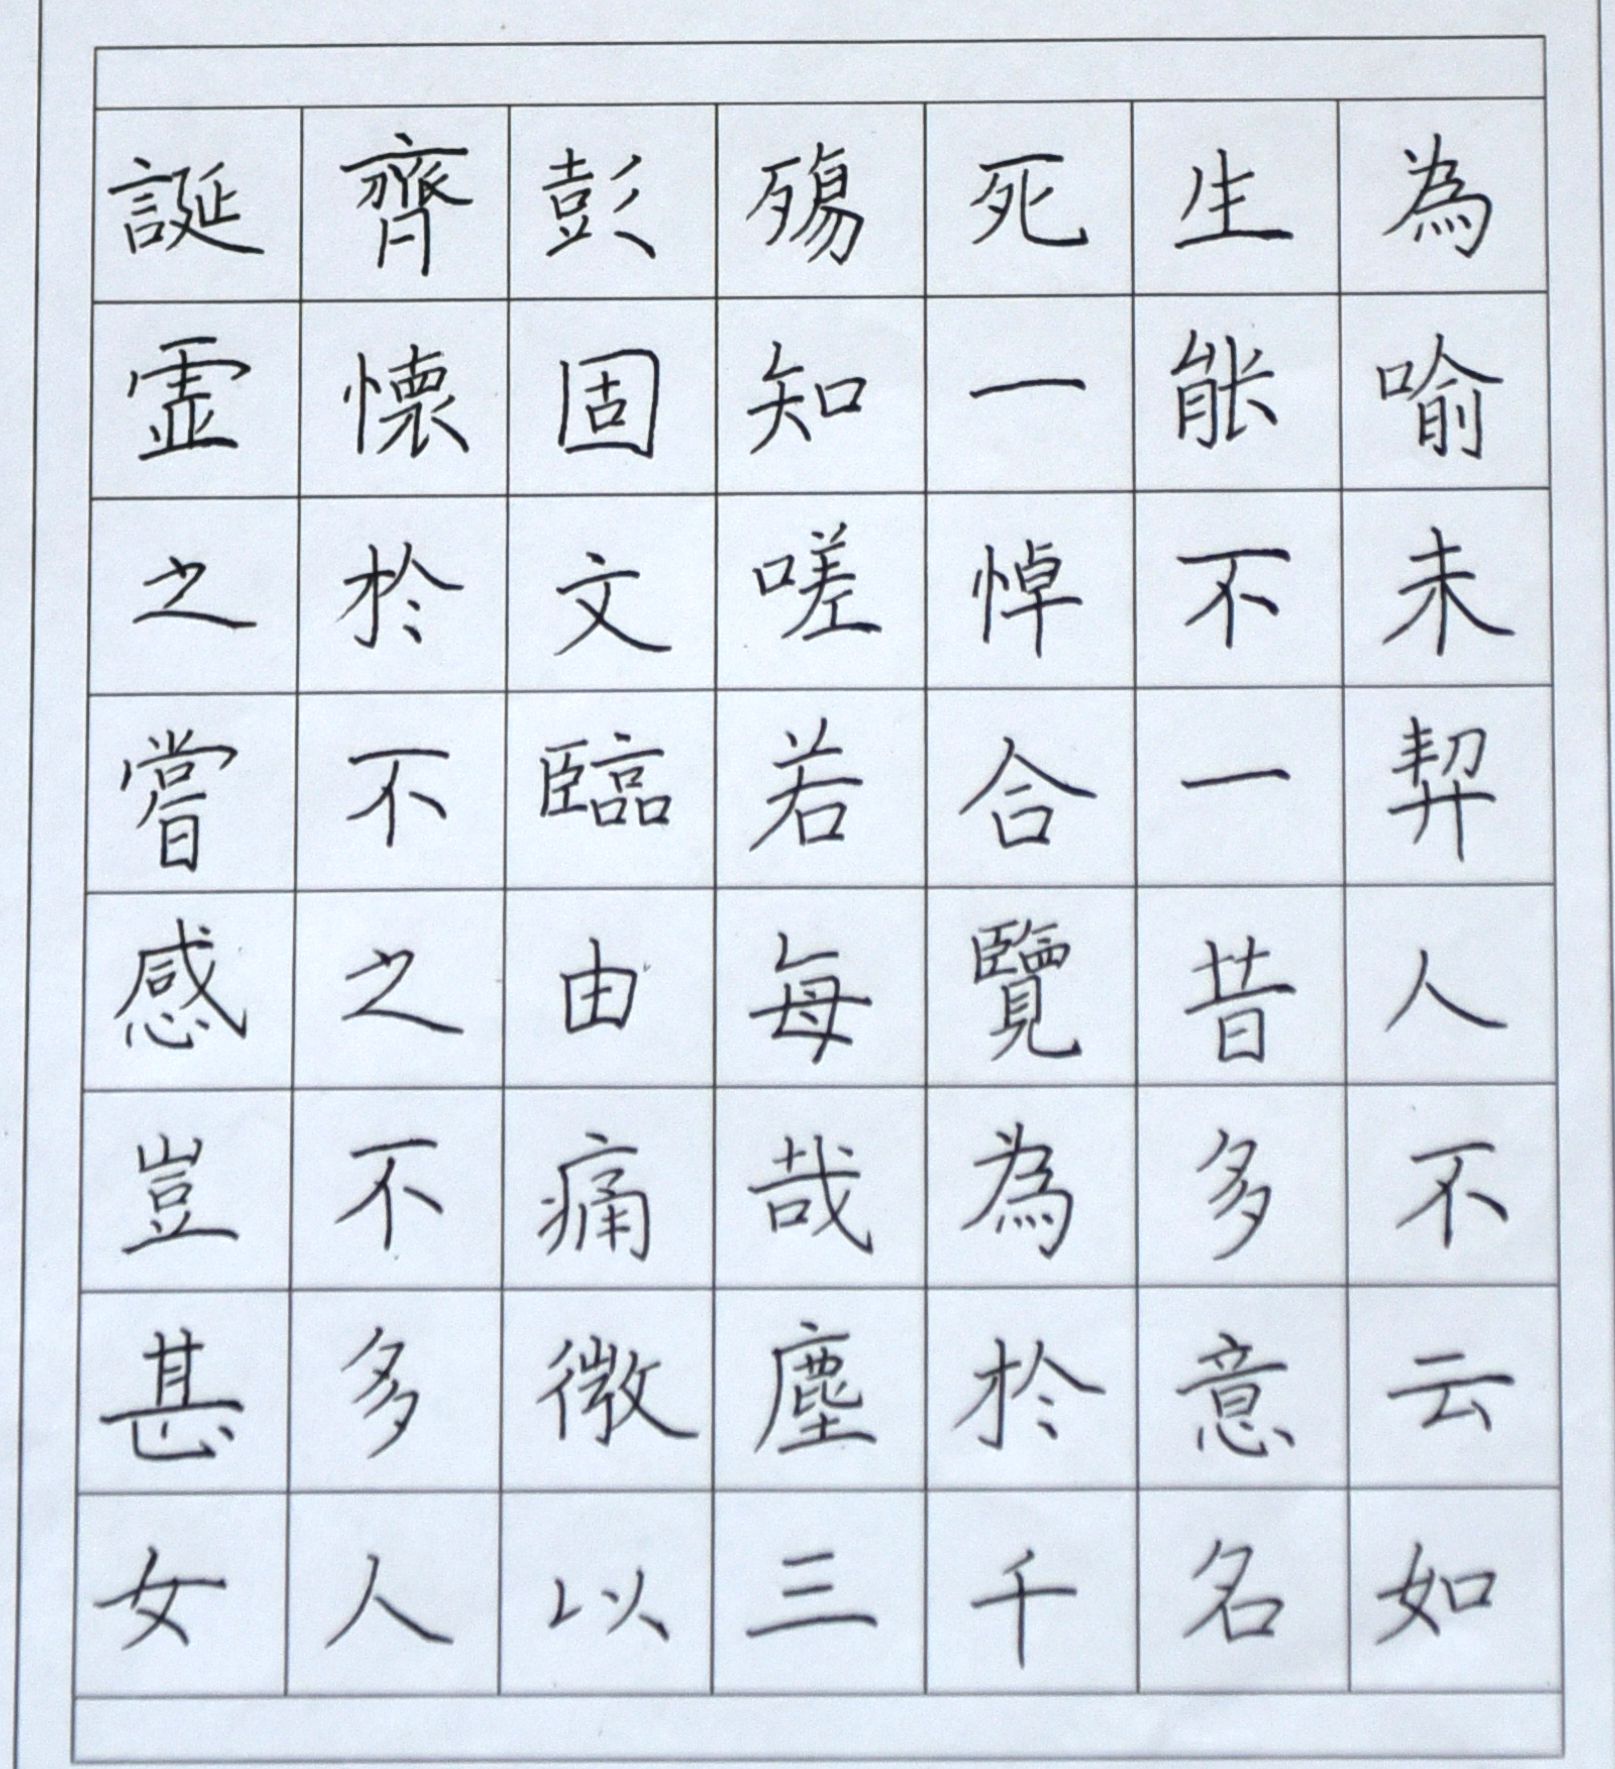 誕齊彭殤死生為
虛懷固知一能喻
之於文嗟悼不未
嘗不臨若合一契
感之由每覽昔人
豈不痛哉為多不
甚多微塵於意云
女人以三千名如